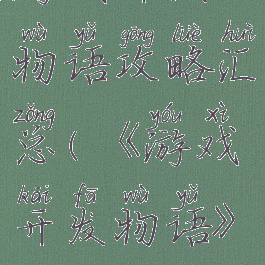 wù yǔ gōng lüè huì
物语攻略汇
zǒng yóu xì
总(《游戏
kāi fā wù yǔ
开发物语》